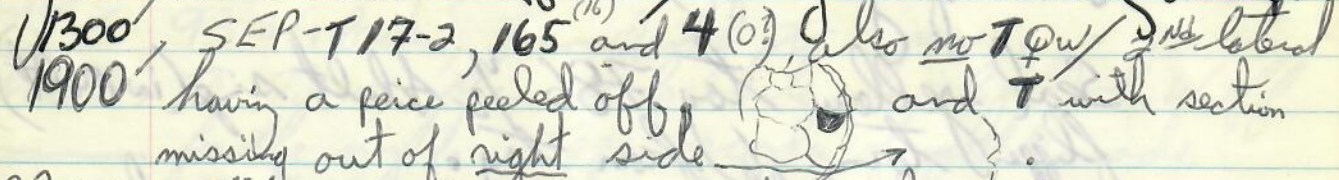 1300, SEP-T17-2, 165 (16) and 4 (0?) also no T ♀ w/ 2nd lateral
1900 having a peice peeled off, and T with section
missing out of right side .